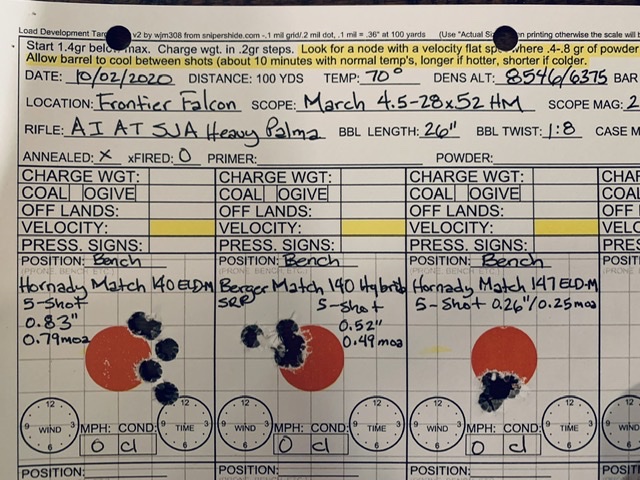 Load Development Targ v2 by wjm308 from snipershide.com -.1 mil grid/.2 mil dot, .1 mil = .36" at 100 yards (Use "Actual Si en printing otherwise the scale will
Start 1.4gr below max. Charge wgt. in .2gr steps. Look for a node with a velocity flat spot where .4-.8 gr of powder
Allow barrel to cool between shots (about 10 minutes with normal temp's, longer if hotter, shorter if colder.
DATE: 10/02/2020 DISTANCE: 100 YDS TEMP: 70° DENS ALT: 8546/6375 BAR
LOCATION: Frontier Falcon SCOPE: March 4.5-28x52 HM SCOPE MAG: 2
RIFLE: AI AT SJA Heavy Palma BBL LENGTH: 26" BBL TWIST: 1:8 CASE M
ANNEALED: x xFIRED: 0 PRIMER: POWDER:
CHARGE WGT: CHARGE WGT: CHARGE WGT: CHAR
COAL OGIVE COAL OGIVE COAL OGIVE COAL
OFF LANDS: OFF LANDS: OFF LANDS: OFF
VELOCITY: VELOCITY: VELOCITY: VELO
PRESS. SIGNS: PRESS. SIGNS: PRESS. SIGNS: PRES
POSITION: Bench POSITION: Bench POSITION: Bench POSIT
(PRONE, BENCH, ETC.) (PRONE, BENCH, ETC.) (PRONE, BENCH, ETC.) (PRONE
Hornady Match 140 ELD-M Berger Match 140 Hybrid Hornady Match 147 ELD-M
5-shot SRP 5-shot 5-shot 0.26"/0.25 moa
0.83" 0.52"
0.79 moa 0.49 moa
12 12 12 12 12 12 12
9 WIND 3 MPH: COND: 9 TIME 3 9 WIND 3 MPH: COND: 9 TIME 3 9 WIND 3 MPH: COND: 9 TIME 3 9 WIND
6 0 cl 6 6 0 cl 6 6 0 cl 6 6
POSITION: POSITION: POSITION: POSIT